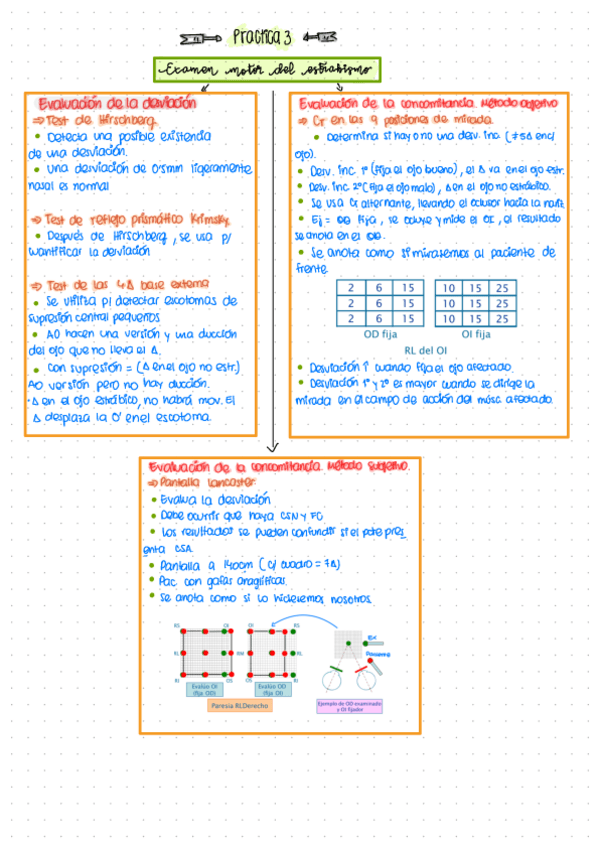 Practica 3
Examen motor del estrabismo
Evaluación de la desviación
⇒ Test de Hirschberg.
• Detecta una posible existencia
de una desviación.
• Una desviación de 0'5mm ligeramente
nasal es normal
⇒ Test de reflejo prismático Krimsky.
• Después de Hirschberg, se usa p/
cuantificar la desviación
⇒ Test de las 4Δ base externa
• Se utiliza p/ detectar escotomas de
supresión central pequeños
• AO hacen una versión y una ducción
del ojo que no lleva el Δ.
• Con supresión = (Δ en el ojo no estr.)
AO versión pero no hay ducción.
• Δ en el ojo estrábico, no habrá mov. El
Δ desplaza la 0' en el escotoma.
Evaluación de la concomitancia. Método objetivo
⇒ CT en las 9 posiciones de mirada.
• Determina si hay o no una desv. inc. (≠5Δ en c/
ojo).
• Desv. inc. 1ª (fija el ojo bueno), el Δ va en el ojo estr.
• Desv. inc. 2ª (fija el ojo malo), Δ en el ojo no estrábico.
• Se usa CT alternante, llevando el oclusor hacia la nariz.
• Ej = OD fija, se ocluye y mide el OI, el resultado
se anota en el OD.
• Se anota como si mirasemos al paciente de
frente.
2 6 15 10 15 25
2 6 15 10 15 25
2 6 15 10 15 25
OD fija OI fija
RL del OI
• Desviación ↑ cuando fija el ojo afectado.
• Desviación 1ª y 2ª es mayor cuando se dirige la
mirada en el campo de acción del músc. afectado.
Evaluación de la concomitancia. Método subjetivo.
⇒ Pantalla Lancaster
• Evalua la desviación
• Debe ocurrir que haya CSN y FC
• Los resultados se pueden confundir si el pcte pres_
enta CSA.
• Pantalla a 140cm (c/ cuadro = 7Δ)
• Pac. con gafas anaglíficas.
• Se anota como si lo hicieremos nosotros.
RS OI OS RS
RL RM RL
RI OS OS RI
Evalúo OI
(fija OD)
Evalúo OD
(fija OI)
Paresia RLDerecho
Ex
Paciente
Ejemplo de OD examinado
y OI fijador